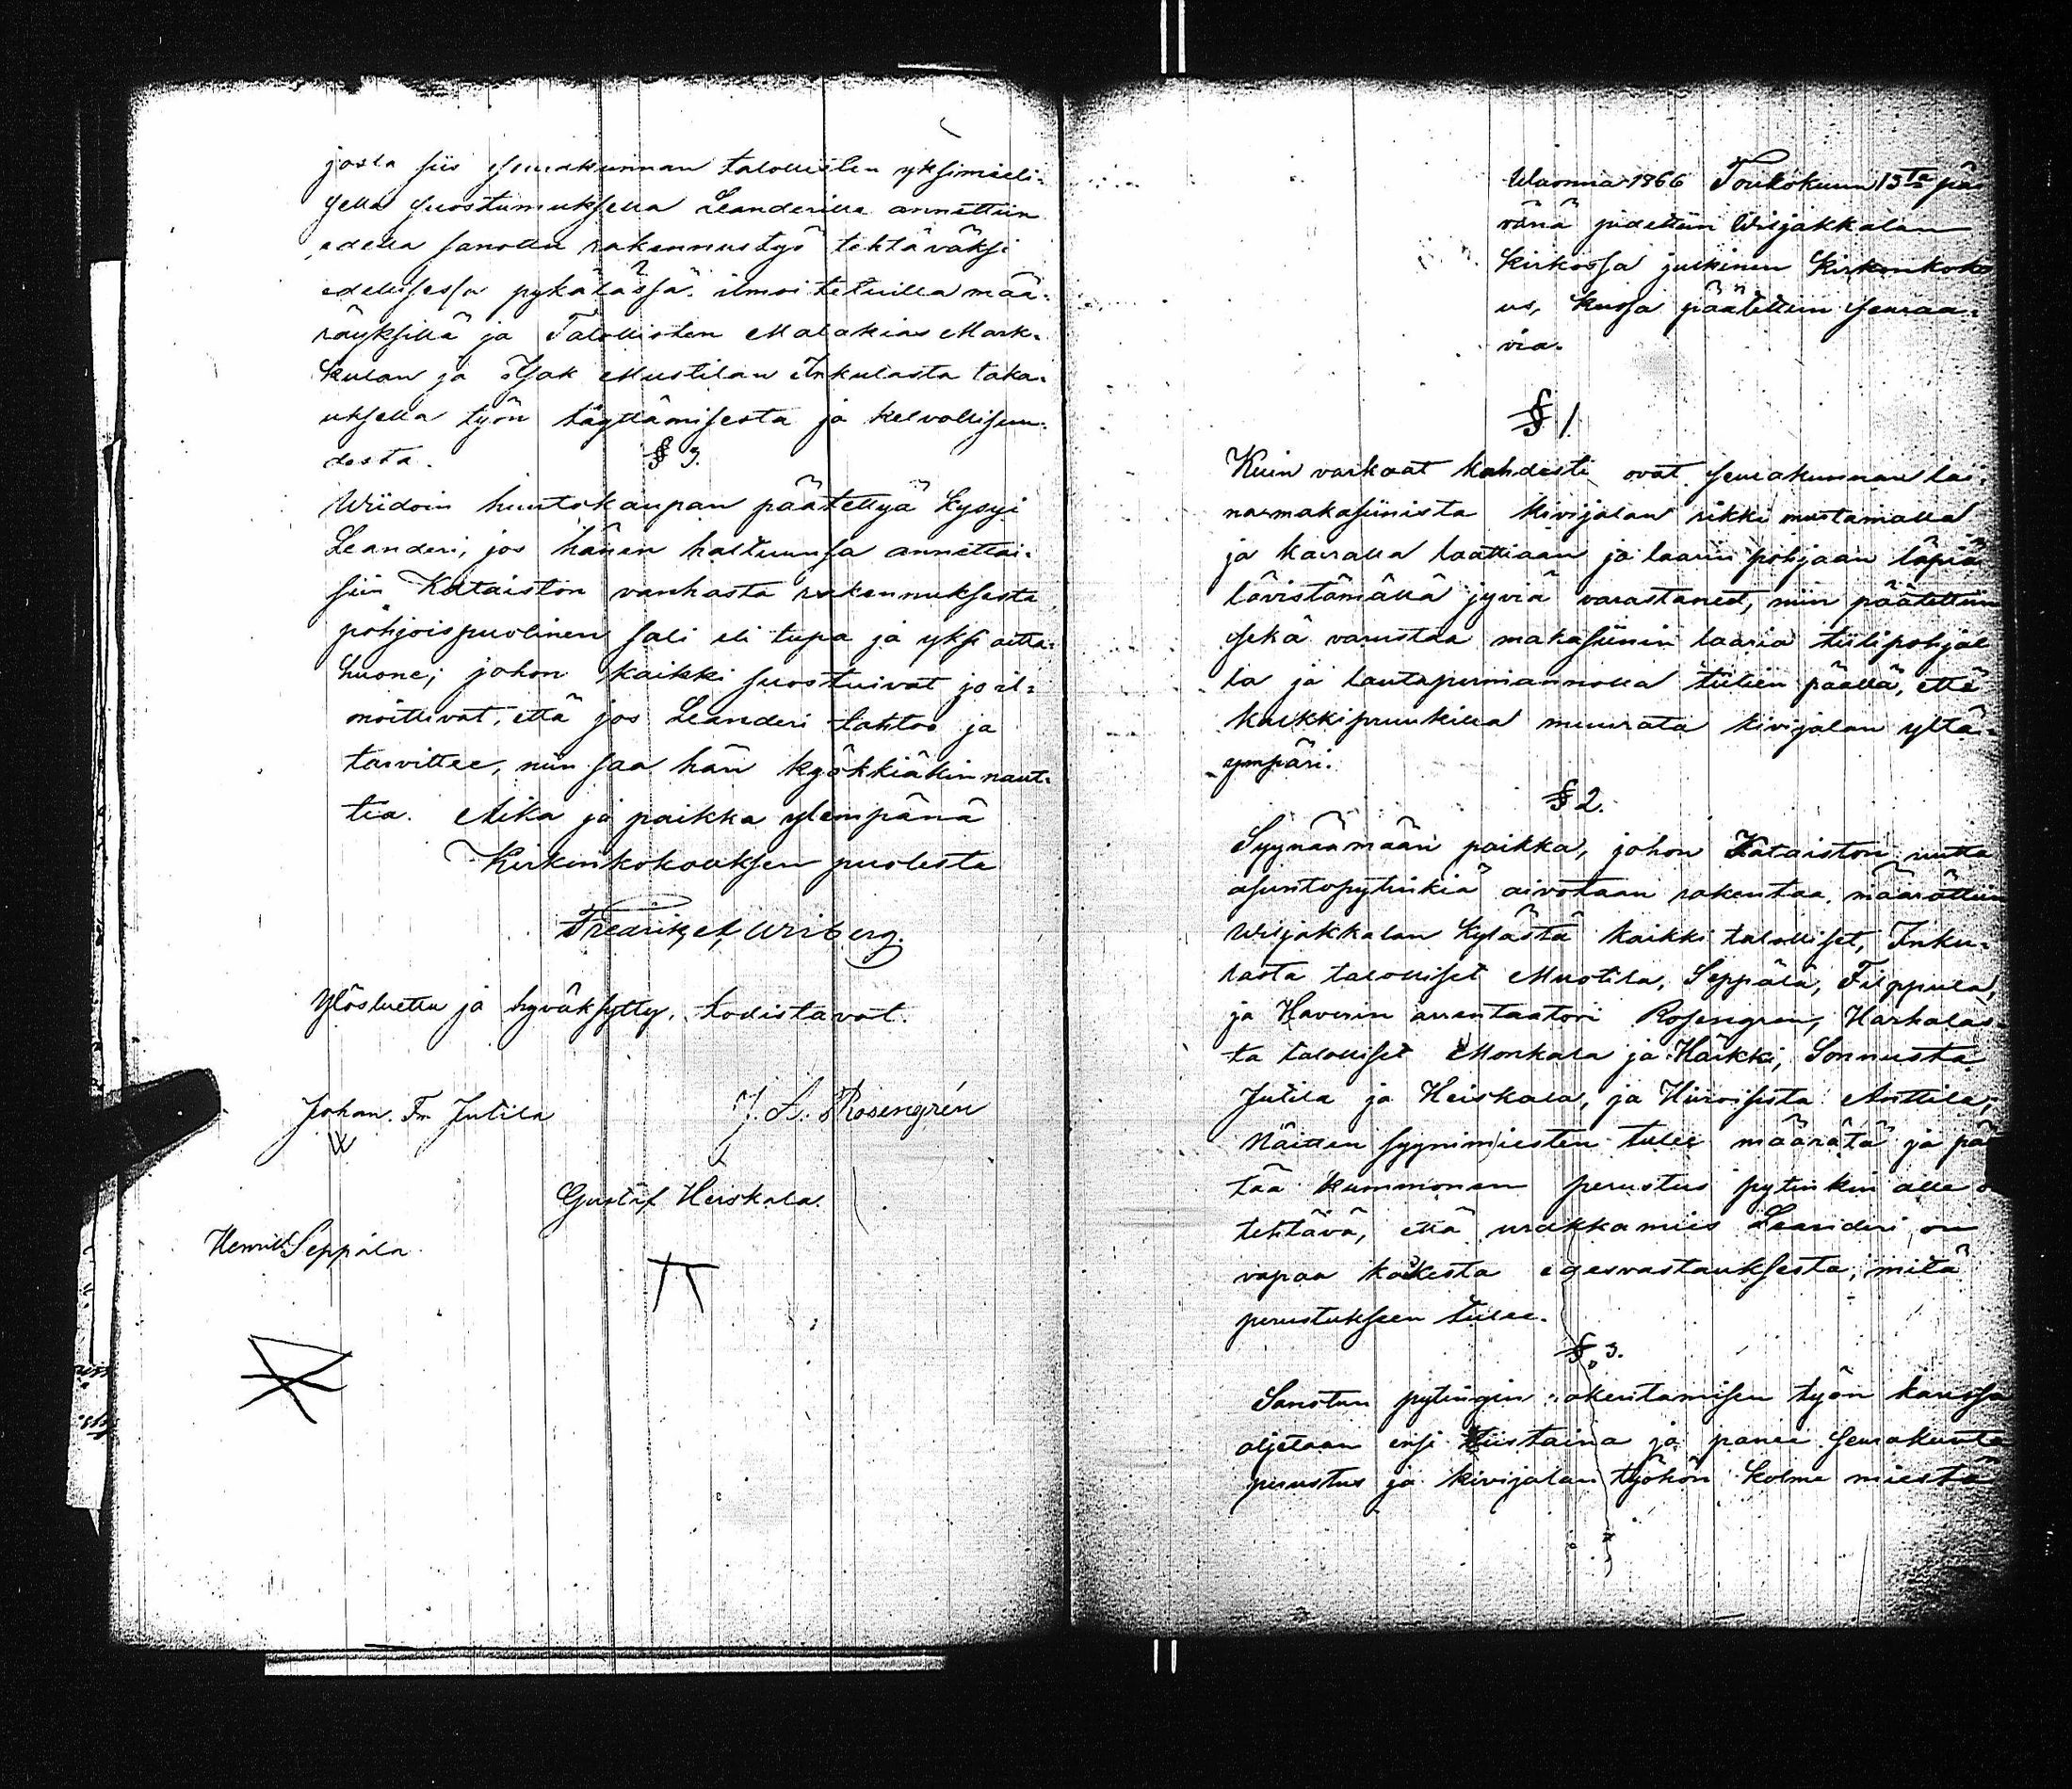 josta siis seurakunnan talollisten yksimieli-
sellä suostumuksella Leanderilla annettiin
edellä sanottu rakennustyö tehtäväksi
edellisessä pykälässä ilmoitetuilla mää-
räyksillä ja Talollisten Malakias Mark-
kulan ja Isak Mustilan Inkulasta taka-
uksella työn täyttämisestä ja kelvollisuu-
desta.
§ 3.
Wiidoin huutokaupan päätettyä kysyi
Leanderi, jos hänen haltuunsa annettai-
siin Kataiston vanhasta rakennuksesta
pohjoispuolinen sali eli tupa ja yksi aitta-
huone; johon kaikki suostuivat ja il-
moittivat, että jos Leanderi tahtoo ja
tarvittee, niin saa hän kyökkiäkin naut-
tia. Aika ja paikka ylempänä
Kirkonkokouksen puolesta
Fredrik A. Wiberg.
Ylösluettu ja hyväksytty, todistavat.
Johan. Fr. Jutila
J. L. Rosengrén
Gustaf Heiskala.
Henrik Seppälä
Wuonna 1866 Toukokuun 13ta päi
vänä pidettiin Wiljakkalan
Kirkossa julkinen Kirkonkoko
us, kussa päätettiin seuraa-
via.
§ 1.
Kuin varkaat kahdesti ovat seurakunnan lai-
namakasiinista kivijalan rikki mustamalla
ja kairalla laattiaan ja laarin pohjaan läpiä
lävistämällä jyviä varastaneet, niin päätettiin
sekä varustaa makasiinin laaria tiilipohjal
la ja lautapermannolla tiilien päällä, että
kalkkipruukilla muurata kivijalan yltä-
ympäri.
§ 2.
Syynäämään paikka, johon Kataiston uutta
asuntopytinkiä aivotaan rakentaa, määrättiin
Wiljakkalan Kylästä kaikki talolliset, Inku-
lasta talolliset Mustila, Seppälä, Filppula,
ja Haverin arentaatori Rosengren, Harhalas-
ta talolliset Monkala ja Häikki, Sonnusta
Jutila ja Heiskala, ja Hiiroisista Anttila;
Näitten syynimiesten tulee määrätä ja pää
tää kummonen perustus pytinkin alle o
tehtävä, että urakkamies Leanderi on
vapaa kaikesta edesvastauksesta, mitä
perustukseen tulee.
§ 3.
Sanotun pytingin rakentamisen työn kanssa
aljetaan ensi tiistaina ja panee seurakunta
perustus ja kivijalan työhön kolme miestä